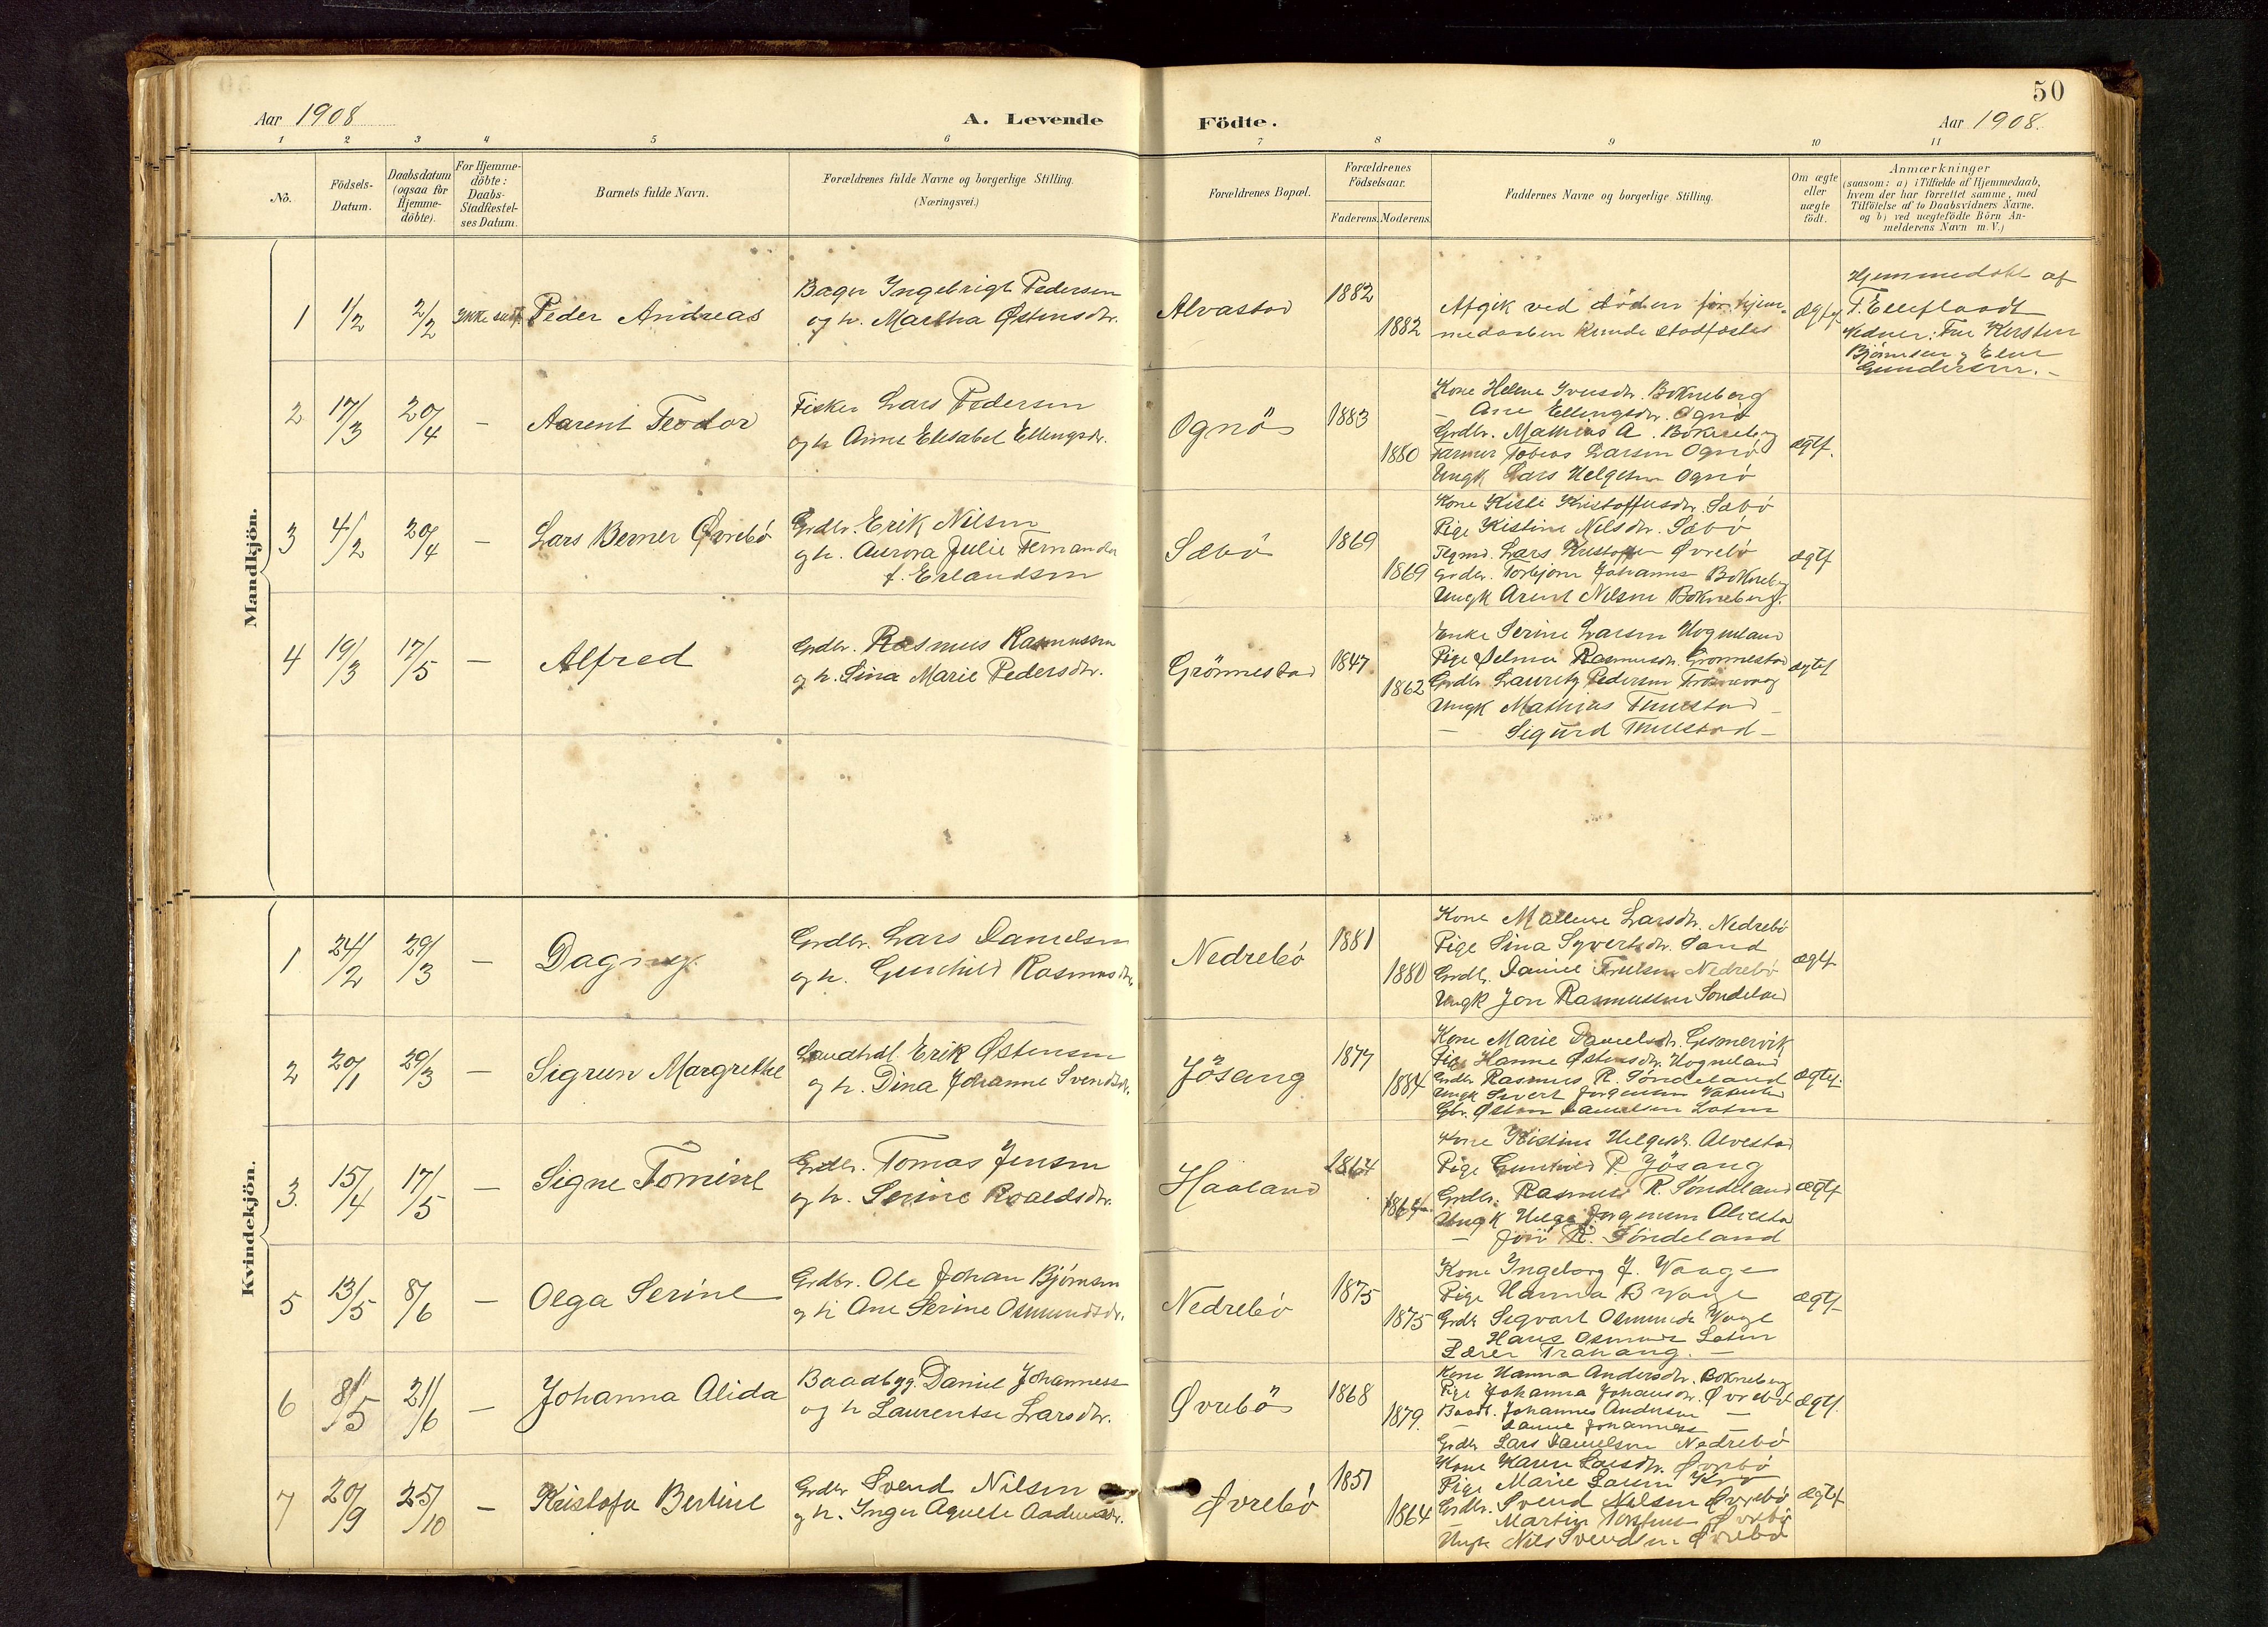 50
Aar 1908
A. Levende Födte.
Aar 1908.
1 2 3 4 5 6 7 8 9 10 11
No.
Födsels-Datum.
Daabsdatum (ogsaa for Hjemme-döbte).
For Hjemme-döbte: Daabs-Stadfæstel-ses Datum.
Barnets fulde Navn.
Forældrenes fulde Navne og borgerlige Stilling.
(Næringsvei.)
Forældrenes Bopæl.
Forældrenes Födselsaar.
Faderens. Moderens.
Faddernes Navne og borgerlige Stilling.
Om ægte eller uægte födt.
Anmærkninger
(saasom: a) i Tilfælde af Hjemmedaab,
hvem der har forrettet samme, med
Tilföielse af to Daabsvidners Navne,
og b) ved uægtefödte Börn An-
melderens Navn m. V.)
Mandkjön.
1 1/2 2/2 Ikke Peder Andreas
Bager Ingebrigt Pedersen
og h. Martha Østensdtr.
Alvastad 1882 1882
Afgik ved døden før hjem-
medaaben kunde stadfæstes
Ægtef.
Hjemmedøbt af
T. Elleflaadt
Vidner: Fru Kirsten
Bjørnsen og Elen
Gundersen. -
2 17/3 20/4 - Aarent Teodor
Fisker Lars Pedersen
og h. Anne Elisabet Ellingsdr.
Ognö 1883 1880
Kone Helene Iversdr. Bokneberg
- Ane Ellingsdr. Ognø
Grdbr. Mathias A. Bokneberg
Farmer Tobias Larsen Ognø
Ungk Lars Helgesen Ognø
ægtf.
3 4/2 20/4 - Lars Berner Øvrebö
Grdbr. Erik Nilsen
og h. Aurora Julie Fernanda
f. Erlandsen
Sæbö 1869 1869
Kone Kisti Kristoffersdr. Sæbø
Pige Kistine Nilsdr. Sæbø
Lars Kristoffer Øvrebø
Grdbr. Torbjørn Johannes Bokneberg
Ungk Arent Nilsen Bokneberg.
ægtf
4 19/3 17/5 - Alfred
Grdbr. Rasmus Rasmussen
og h. Sina Marie Pedersdtr.
Grönnestad 1847 1862
Enke Serine Larsen Hogneland
Pige Selma Rasmusdr. Grønnestad
Grdbr Lauritz Pedersen
Ungk Mathias
- Sigurd
ægtef
Kvindekjön.
1 24/2 29/3 - Dagny.
Grdbr. Lars Danielsen
og h. Gunhild Rasmusdtr.
Nedrebö 1881 1880
Kone Mallene Larsdtr. Nedrebö
Pige Sina Syvertsdtr. Sand
Grdbr. Daniel Truelsen Nedrebö
Ungk Jon Rasmussen Söndeland
ægtf
2 20/1 29/3 - Sigrun Margrethe
Landhdl. Erik Østensen
og h. Dina Johanne Svendsdr.
Jösang 1877 1884
Kone Marie Danielsdtr. Gismervik
Pige Hanne Østensdtr. Hogneland
Grdbr Rasmus R. Söndeland
Ungk Sivert Jørgensen
Gbr. Østen Danielsen
ægtef.
3. 15/4 17/5 - Signe Tomine
Grdbr. Tomas Jensen
og h. Serine Roaldsdtr.
Haaland 1864
Kone Kistine Helgesdr. Alvestad
Pige Gunhild P. Jösang
Grdbr. Rasmus R. Söndeland
Ungk Helge Jørgensen Alvestad
- Jon R. Söndeland
ægtf
5 13/5 8/6 - Olga Serine
Grdbr. Ole Johan Bjørnsen
og h Ane Serine Osmundsdr.
Nedrebö 1875 1875
Kone Ingeborg J. Vaage
Pige Hanna B Vaage
Grdbr Sigvart Osmundsen Vage
- Hans Osmunds
Lærer Trahaug. -
Ægtf
6 8/5 21/6 - Johanna Alida
Baadbygg. Daniel Johanness
og h Laurentse Larsdtr.
Øvrebö 1868 1879.
Kone Hanna Andersdr. Bokneberg
Pige Johanna Johansdr. Øvrebø
Baadb. Johannes Andersen -
- Daniel Johanness -
Grdbr Lars Danielsen Nedrebø
ægtf.
7 20/9 25/10 - Kristofa Bertine
Grdbr Svend Nilsen
og h. Inger Agnete
Øvrebö 1851 1864
Kone Karen Larsdtr. Øvrebø
Pige Marie Larsen
Grdbr. Svend Nilsen Øvrebø
- Martin Torstens Øvrebø
Ungk Nils Svendsen Øvrebø
ægtef